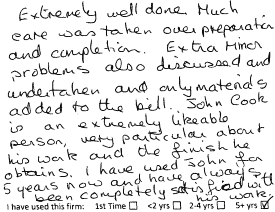 Extremely well done. Much
care was taken over preparation
and completion. Extra minor
problems also discussed and
undertaken and only materials
added to the bill. John Cook
is an extremely likeable
person, very particular about
his work and the finish he
obtains. I have used John for
5 years now and have always
been completely satisfied with
his work.
I have used this firm: 1st Time ☐ <2 yrs ☐ 2-4 yrs ☐ 5+ yrs ☑